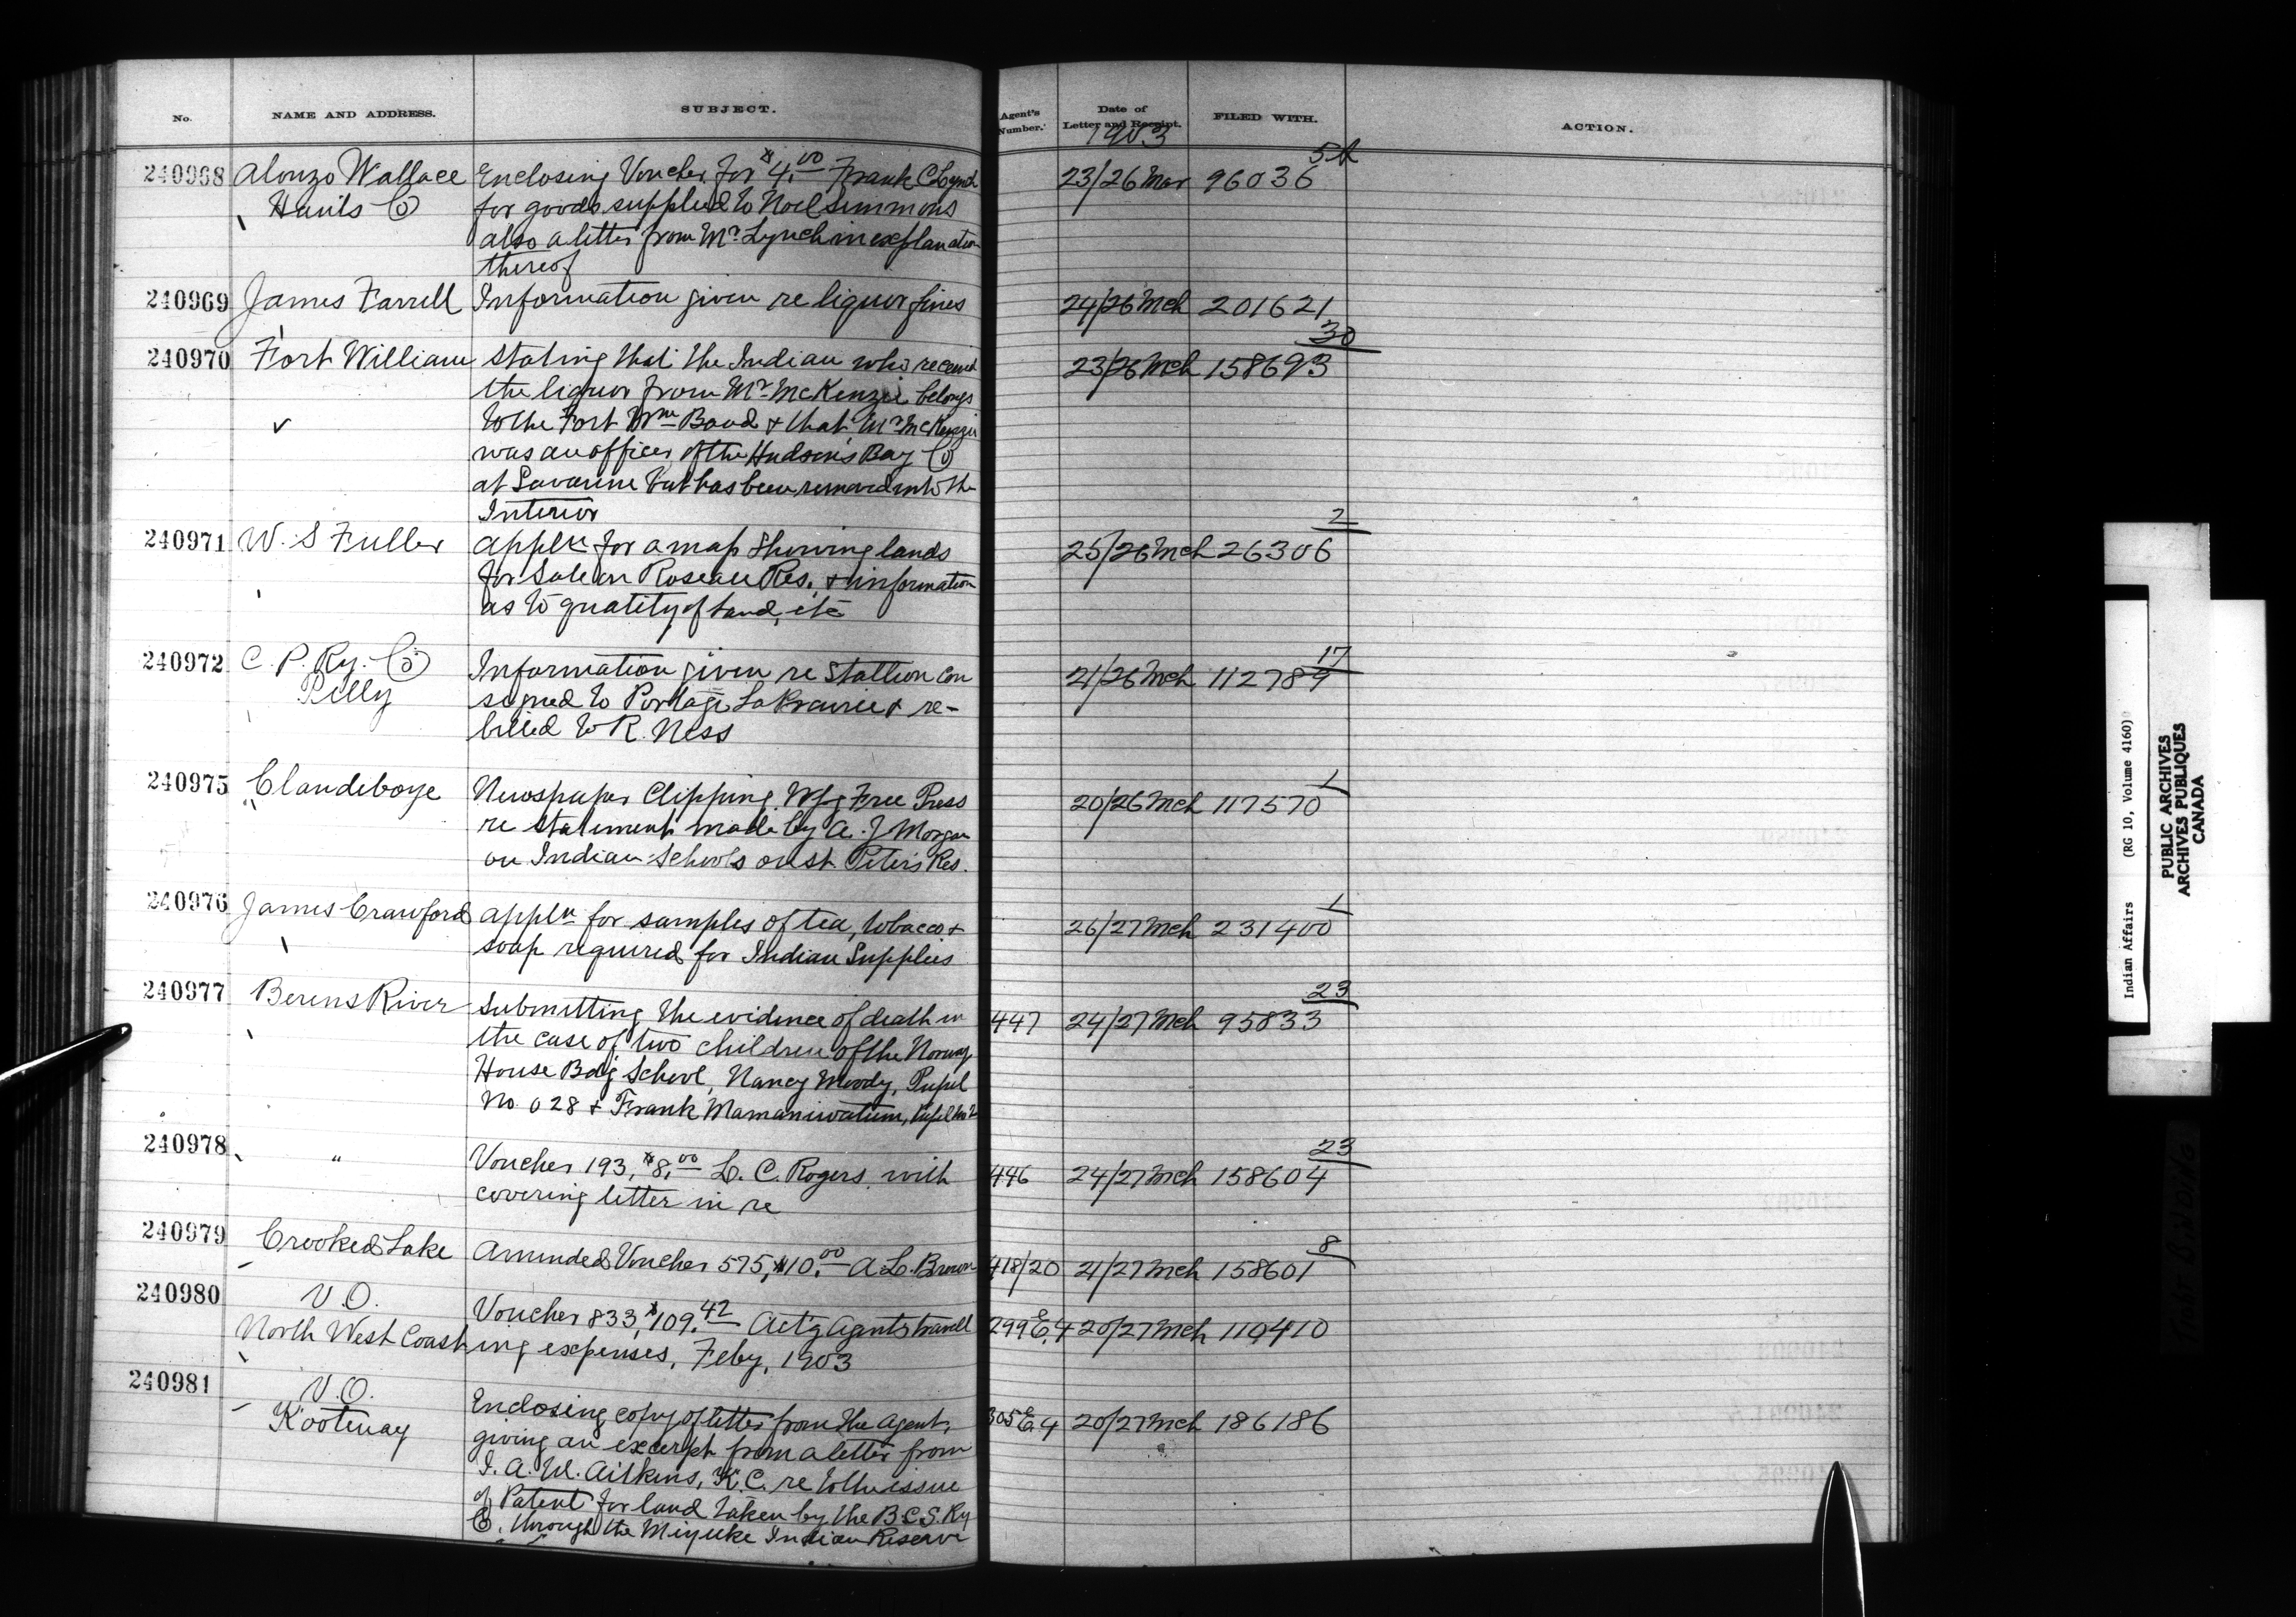 No. NAME AND ADDRESS. SUBJECT. Agent's Number. Date of Letter and Receipt. FILED WITH. ACTION.
1903
240968 Alonzo Wallace Enclosing Voucher for $4.00 Frank C Lynch 23/26 Mar 96036 5A
Hants Co for goods supplied to Noel Simmons
also a letter from Mr Lynch in explanation
thereof
240969 James Farrell Information given re liquor fines 24/26 Mch 201621
240970 Fort William Stating that the Indian who received 23/26 Mch 158693 30
the liquor from Mr McKenzie belongs
to the Fort Wm Band & that Mr McKenzie
was an officer of the Hudson's Bay Co
at Savanne but has been removed into the
Interior
240971 W. S Fuller Appln for a map showing lands 25/26 Mch 26306 2
for sale on Roseau Res. & information
as to quality of land, etc
240972 C. P. Ry. Co Information given re Stallion con 21/26 Mch 112789 17
Pelly signed to Portage La Prairie & re-
billed to R. Ness
240975 Clandeboye Newspaper Clipping Wpg Free Press 20/26 Mch 117570 1
re statement made by A. J Morgan
on Indian Schools on St. Peter's Res.
240976 James Crawford Appln for samples of tea, tobacco & 26/27 Mch 231400 1
soap required for Indian Supplies
240977 Berens River Submitting the evidence of death in 447 24/27 Mch 95833 23
the case of two children of the Norway
House Bdg School, Nancy Moody, Pupil
No. 028 & Frank Mamaniwatum, Pupil No
240978 " Voucher 193, $8.00 L. C. Rogers, with 446 24/27 Mch 158604 23
covering letter in re
240979 Crooked Lake Amended Voucher 575, $10.00 A. L. Brown 418/20 21/27 Mch 158601 8
240980 V. O. Voucher 833, $109.42 Act'g Agents travell 299 E.4 20/27 Mch 119410
North West Coast ing expenses, Feby, 1903
240981 V. O. Enclosing copy of letter from the Agent, 305 E.4 20/27 Mch 186186
Kootenay giving an excerpt from a letter from
J. A. M. Aitkins, K.C. re to the issue
of Patent for land taken by the B.C.S. Ry
Co. through the Indian Reserve
Indian Affairs (RG 10, Volume 4160)
PUBLIC ARCHIVES
ARCHIVES PUBLIQUES
CANADA